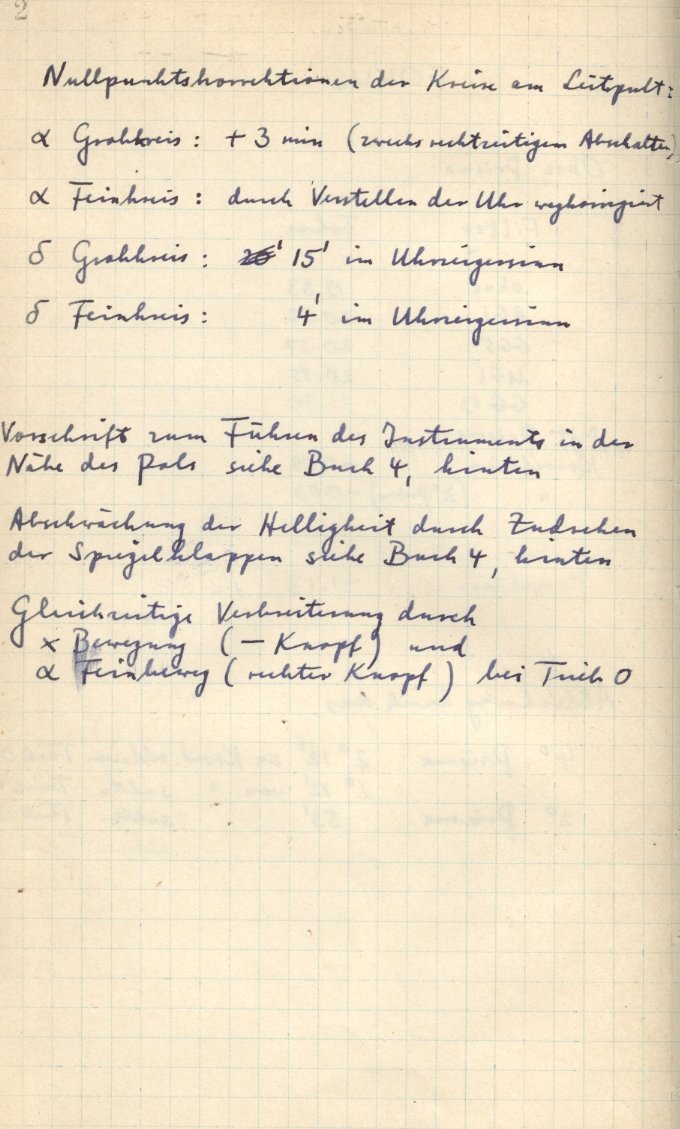 2
Nullpunktskorrektionen der Kreise am Leitpult:
α Grobkreis: + 3 min (zwecks rechtzeitigem Abschalten)
α Feinkreis: durch Verstellen der Uhr wegkorrigiert
δ Grobkreis: 15' im Uhrzeigersinn
δ Feinkreis: 4' im Uhrzeigersinn
Vorschrift zum Führen des Instruments in der
Nähe des Pols siehe Buch 4, hinten
Abschwächung der Helligkeit durch Zudrehen
der Spiegelklappen siehe Buch 4, hinten
Gleichzeitige Verbreiterung durch
x Bewegung (– Knopf) und
α Feinbeweg (rechter Knopf) bei Trieb 0